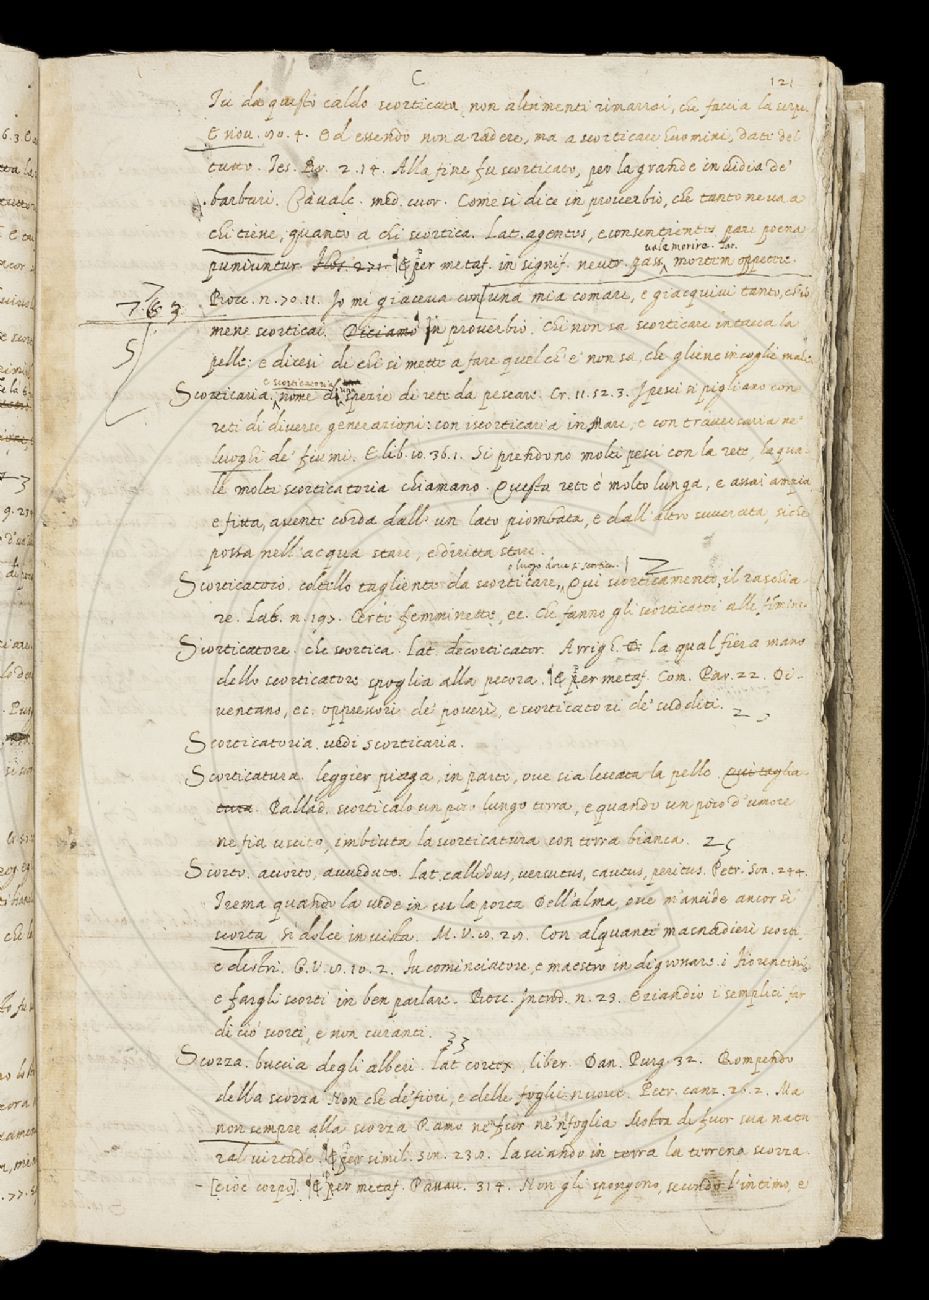 C 121
Tu da questo caldo scorticata, non altrimenti rimarrai, che faccia la serpe.
E nov. 90. 4. Ed essendo non a radere, ma a scorticare huomini, dati del
tutto. Tes. Br. 2. 14. Alla fine fu scorticato, per la grande invidia de'
barbari. Cavalc. med. cuor. Come si dice in proverbio, che tanto ne va a
chi tiene, quanto a chi scortica. Lat. agentes, e consentientes pari poena
vale morire. lat.
puniuntur. E per metaf. in signif. neutr. pass. mortem oppetere.
Bocc. n. 70. 11. Io mi giaceva con una mia comare, e giacquivi tanto, ch'io
7. 6. 3
mene scorticai. Diciamo in proverbio. chi non sa scorticare intacca la
5
pelle: e dicesi di chi si mette a fare quel ch' e' non sa, che gliene incoglie male.
e scorticatoria
Scorticaria. nome di spezie di rete da pescare. Cr. 11. 52. 3. I pesci si pigliano con
reti di diverse generazioni: con iscorticaria in Mare, e con traversaria ne'
luoghi de' fiumi. E lib. 10. 36. 1. Si prendono molti pesci con la rete, la qua-
le molti scorticatoria chiamano. Questa rete è molto lunga, e assai ampia,
e fitta, avente corda dall' un lato piombata, e dall' altro suverata, sichè
possa nell' acqua stare, e diritta stare.
o luogo dove si scortica. 2
Scorticatoio. coltello tagliente da scorticare, Qui scorticamento, il raschia-
re. Lab. n. 197. Certe femminette, ec. che fanno gli scorticatoi alle femine.
Scorticatore. che scortica. Lat. decorticator. Arrigh. la qual fiera mano
dello scorticatore spoglia alla pecora. E per metaf. Com. Par. 22. Di-
ventano, ec. oppressori de' poveri, e scorticatori de' sudditi. 2
Scorticatoria. vedi scorticaria.
Scorticatura. leggier piaga, in parte, ove sia levata la pelle. Qui taglia-
tura. Pallad. scorticalo un poco lungo terra, e quando un poco d'umore
ne fia uscito, imbiuta la scorticatura con terra bianca. 25
Scorto. accorto, avveduto. Lat. callidus, versutus, cautus, peritus. Petr. Son. 244.
Trema quando la vede in su la porta Dell'alma, ove m'ancide ancor sì
scorta Sì dolce in vista. M. V. 10. 29. Con alquanti macnadieri scorti,
e destri. G. V. 9. 10. 2. Fu cominciatore, e maestro in digrossare i Fiorentini,
e fargli scorti in ben parlare. Bocc. Introd. n. 23. Eziandio i semplici far
di ciò scorti, e non curanti. 33
Scorza. buccia degli alberi. lat cortex, liber. Dan. Purg. 32. Rompendo
della scorza Non che de' fiori, e delle foglie nuove. Petr. canz. 26. 2. Ma
non sempre alla scorza Ramo ne'n fior ne'n foglia Mostra di fuor sua natu
ral virtude. E per simil. Son. 230. Lasciando in terra la terrena scorza
- [cioè corpo]. E per metaf. Passav. 314. Non gli spongono, secondo l'intimo, e